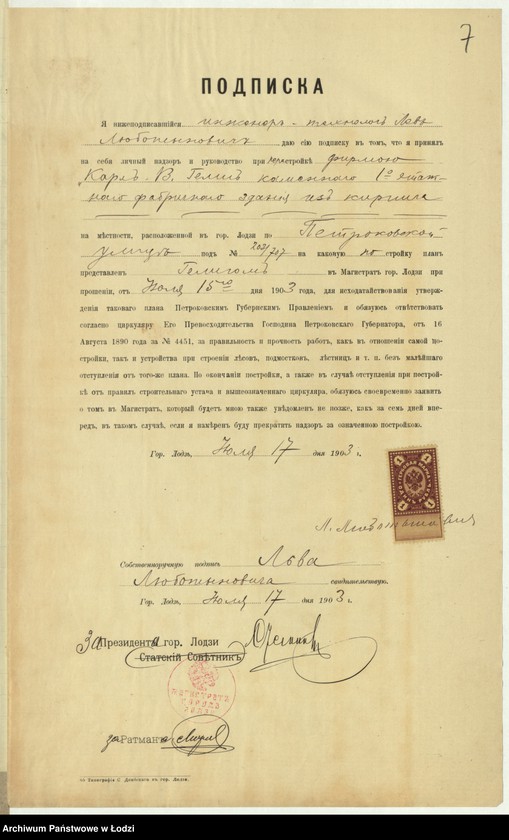 7
ПОДПИСКА
Я нижеподписавшійся инженеръ-технологъ Левъ
Люботыновичъ даю сію подписку въ томъ, что я принялъ
на себя личный надзоръ и руководство при постройкѣ фирмою
„Карлъ-В. Гелигъ каменнаго 1о этаж-
наго фабричнаго зданія изъ кирпича
на мѣстности, расположенной въ гор. Лодзи по Петроковской
улицѣ подъ № 202/707 на какову по стройку планъ
представленъ Гелигомъ въ Магистратъ гор. Лодзи при
прошеніи, отъ Іюля 15го дня 1903 года, для исходатайствованія утверж-
денія таковаго плана Петроковскимъ Губернскимъ Правленіемъ и обязуюсь отвѣтствовать
согласно циркуляру Его Превосходительства Господина Петроковскаго Губернатора, отъ 16
Августа 1890 года за № 4451, за правильность и прочность работъ, какъ въ отношеніи самой по-
стройки, такъ и устройства при строеніи лѣсовъ, подмостковъ, лѣстницъ и т. п. безъ малѣйшаго
отступленія отъ того-же плана. По окончаніи постройки, а также въ случаѣ отступленія при построй-
кѣ отъ правилъ строительнаго устава и вышеозначеннаго циркуляра, обязуюсь своевременно заявить
о томъ въ Магистратъ, который будетъ мною также увѣдомленъ не позже, какъ за семь дней впе-
редъ, въ такомъ случаѣ, если я намѣренъ буду прекратить надзоръ за означенною постройкою.
Гор. Лодзь, Іюля 17 дня 1903 г.
1 1
1 1
Собственноручную подпись Льва
Люботыновича свидѣтельствую.
Гор. Лодзь, Іюля 17 дня 1903 г.
За Президента гор. Лодзи
Статскій Совѣтникъ
МАГИСТРАТЪ
ГОРОДА
ЛОДЗИ
за Ратмана
Archiwum Państwowe w Łodzi